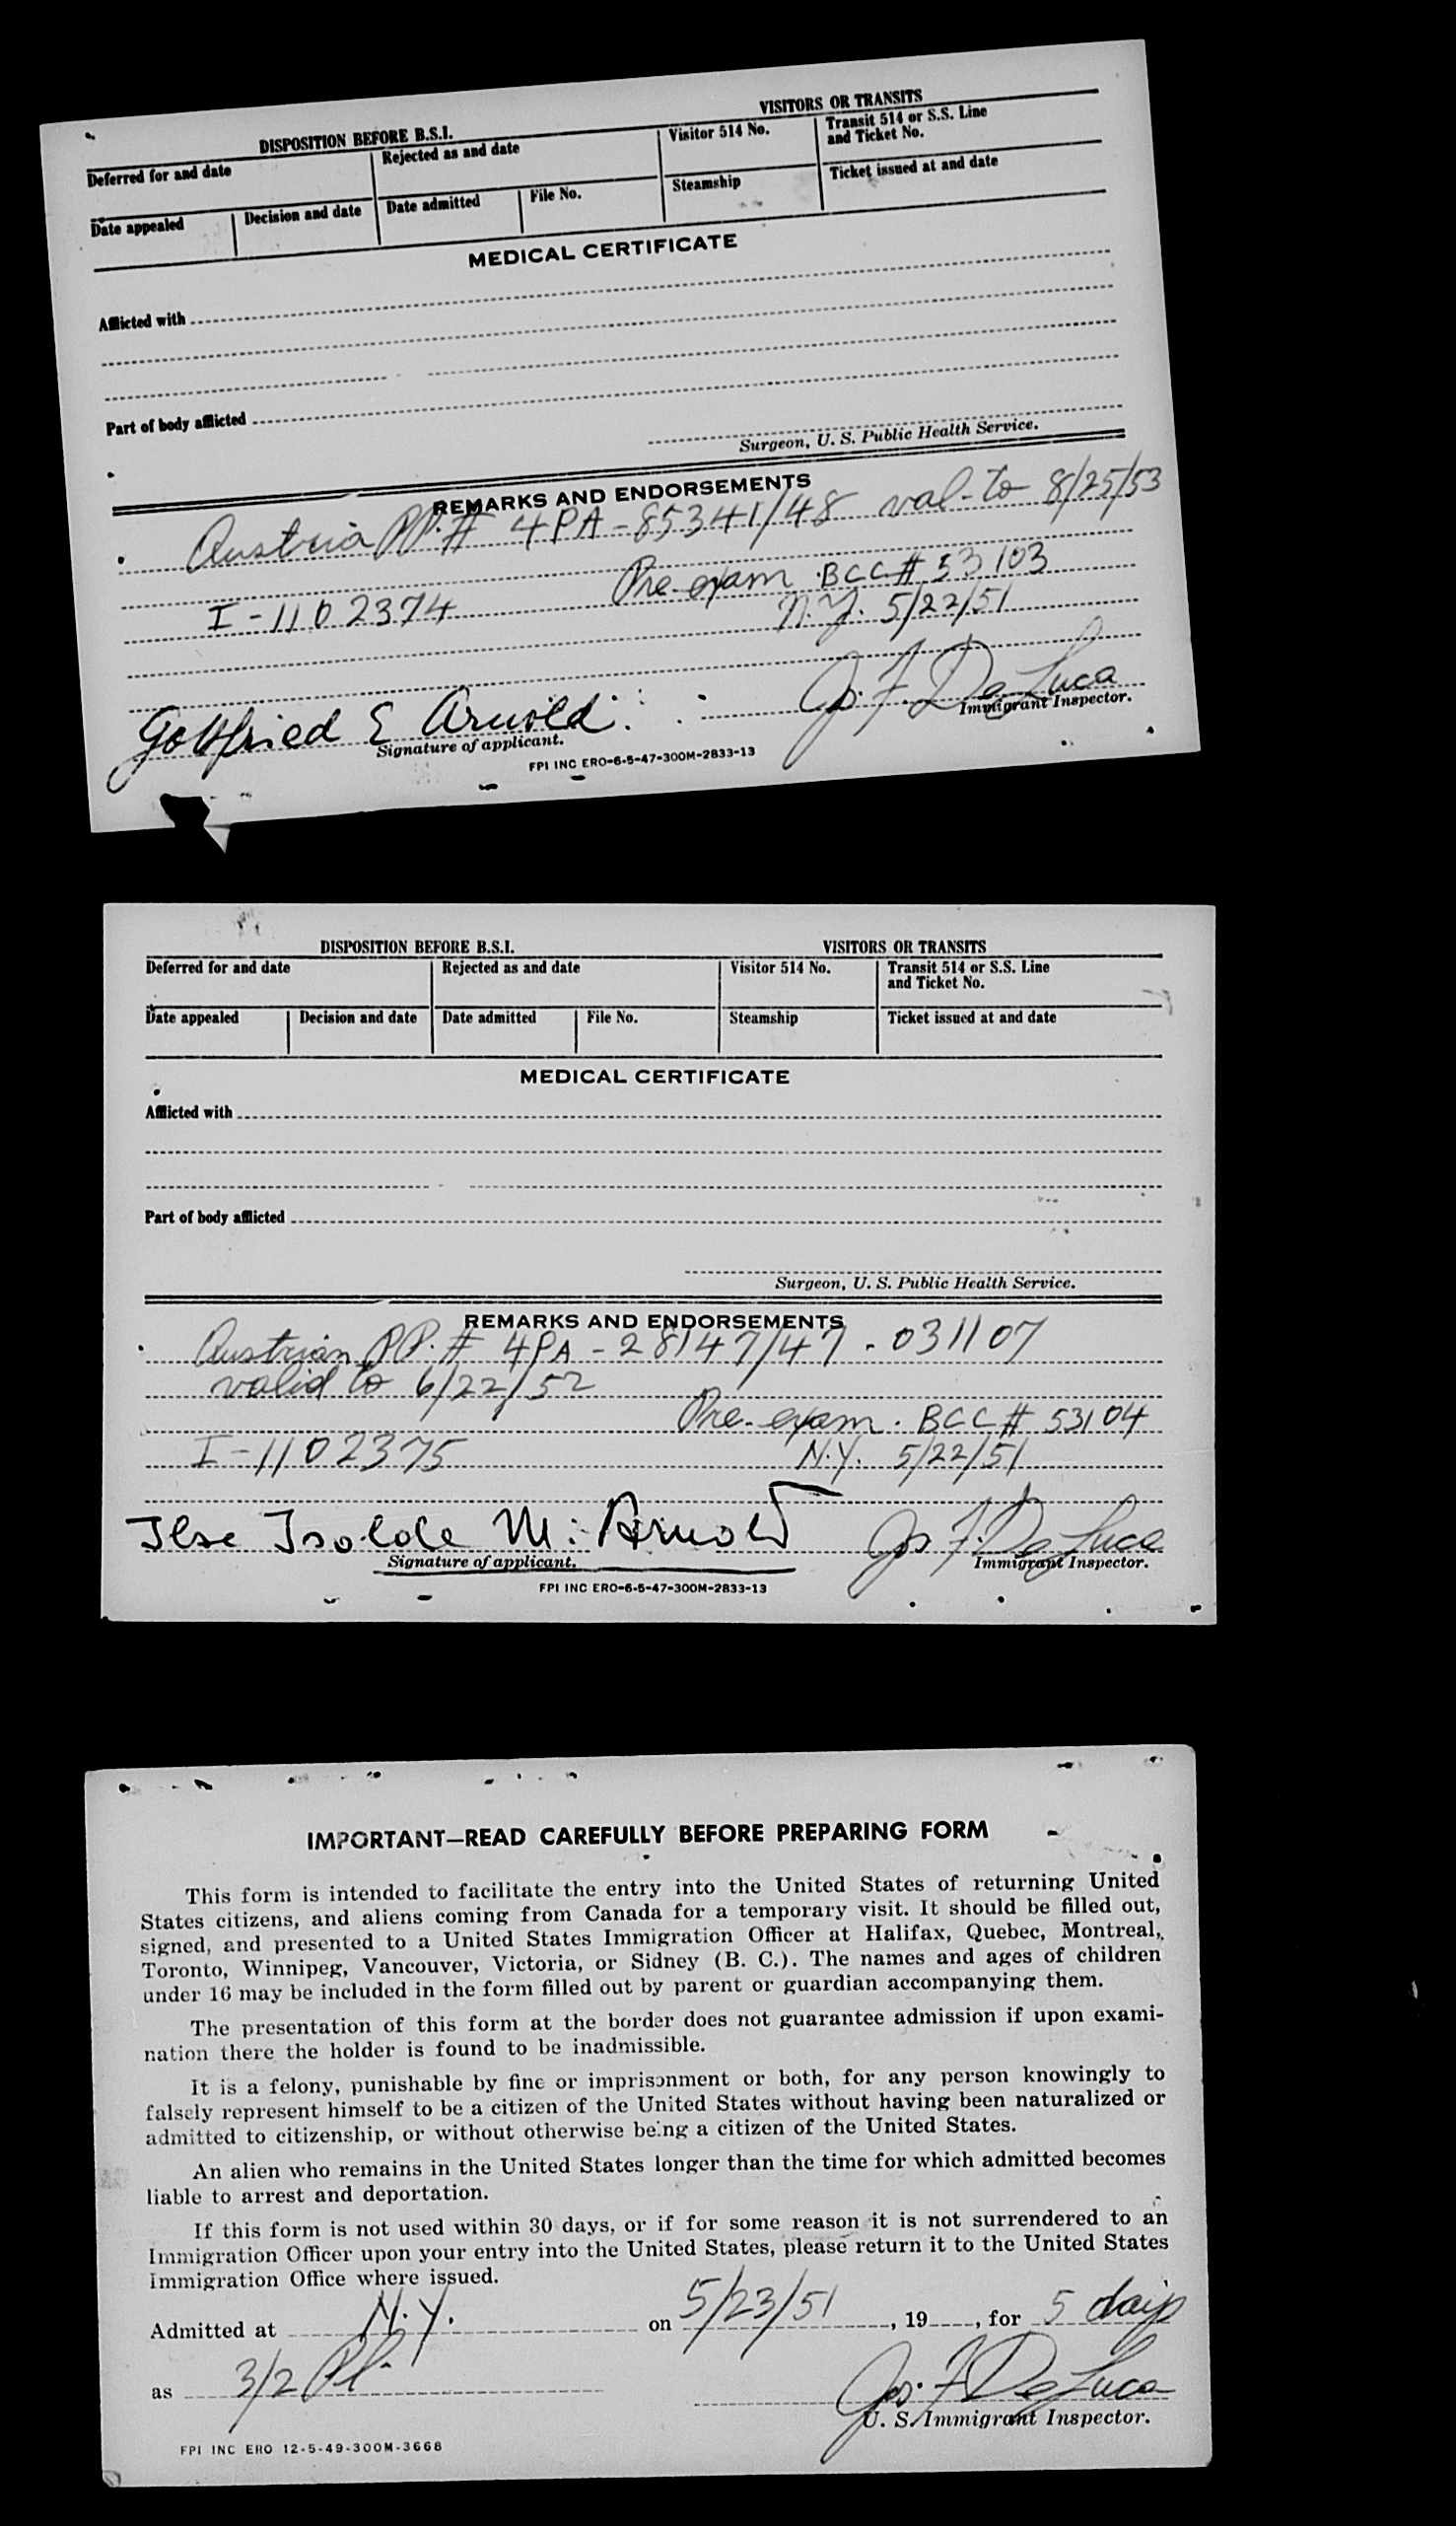 DISPOSITION BEFORE B.S.I. VISITORS OR TRANSITS
Deferred for and date Rejected as and date Visitor 514 No. Transit 514 or S.S. Line and Ticket No.
Date appealed Decision and date Date admitted File No. Steamship Ticket issued at and date
MEDICAL CERTIFICATE
Afflicted with
Part of body afflicted
Surgeon, U. S. Public Health Service.
REMARKS AND ENDORSEMENTS
Austria PP.# 4PA-85341/48 val-to 8/25/53
Pre-exam BCC# 53103
I-1102374 N.Y. 5/22/51
Gottfried E Arnold Jos. F. De Luca
Signature of applicant. Immigrant Inspector.
FPI INC ERO-6-5-47-300M-2833-13
DISPOSITION BEFORE B.S.I. VISITORS OR TRANSITS
Deferred for and date Rejected as and date Visitor 514 No. Transit 514 or S.S. Line
and Ticket No.
Date appealed Decision and date Date admitted File No. Steamship Ticket issued at and date
MEDICAL CERTIFICATE
Afflicted with
Part of body afflicted
Surgeon, U. S. Public Health Service.
REMARKS AND ENDORSEMENTS
Austrian PP.# 4PA-28147/47-031107
valid to 6/22/52
Pre-exam. BCC# 53104
I-1102375 N.Y. 5/22/51
Ilse Isolde M. Arnold Jos F. De Luca
Signature of applicant. Immigrant Inspector.
FPI INC ERO-6-5-47-300M-2833-13
IMPORTANT—READ CAREFULLY BEFORE PREPARING FORM
This form is intended to facilitate the entry into the United States of returning United
States citizens, and aliens coming from Canada for a temporary visit. It should be filled out,
signed, and presented to a United States Immigration Officer at Halifax, Quebec, Montreal,
Toronto, Winnipeg, Vancouver, Victoria, or Sidney (B. C.). The names and ages of children
under 16 may be included in the form filled out by parent or guardian accompanying them.
The presentation of this form at the border does not guarantee admission if upon exami-
nation there the holder is found to be inadmissible.
It is a felony, punishable by fine or imprisonment or both, for any person knowingly to
falsely represent himself to be a citizen of the United States without having been naturalized or
admitted to citizenship, or without otherwise being a citizen of the United States.
An alien who remains in the United States longer than the time for which admitted becomes
liable to arrest and deportation.
If this form is not used within 30 days, or if for some reason it is not surrendered to an
Immigration Officer upon your entry into the United States, please return it to the United States
Immigration Office where issued.
Admitted at N.Y. on 5/23/51, 19, for 5 days
as 3/2 Pl. Jos. F De Luca
U. S. Immigrant Inspector.
FPI INC ERO 12-5-49-300M-3668